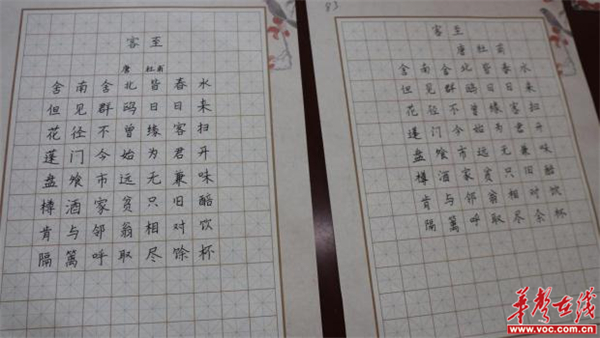 客至
唐 杜甫
舍南舍北皆春水
但见群鸥日日来
花径不曾缘客扫
蓬门今始为君开
盘飧市远无兼味
樽酒家贫只旧醅
肯与邻翁相对饮
隔篱呼取尽馀杯
83
客至
唐杜甫
舍南舍北皆春水
但见群鸥日日来
花径不曾缘客扫
蓬门今始为君开
盘飧市远无兼味
樽酒家贫只旧醅
肯与邻翁相对饮
隔篱呼取尽余杯
华声在线
www.voc.com.cn